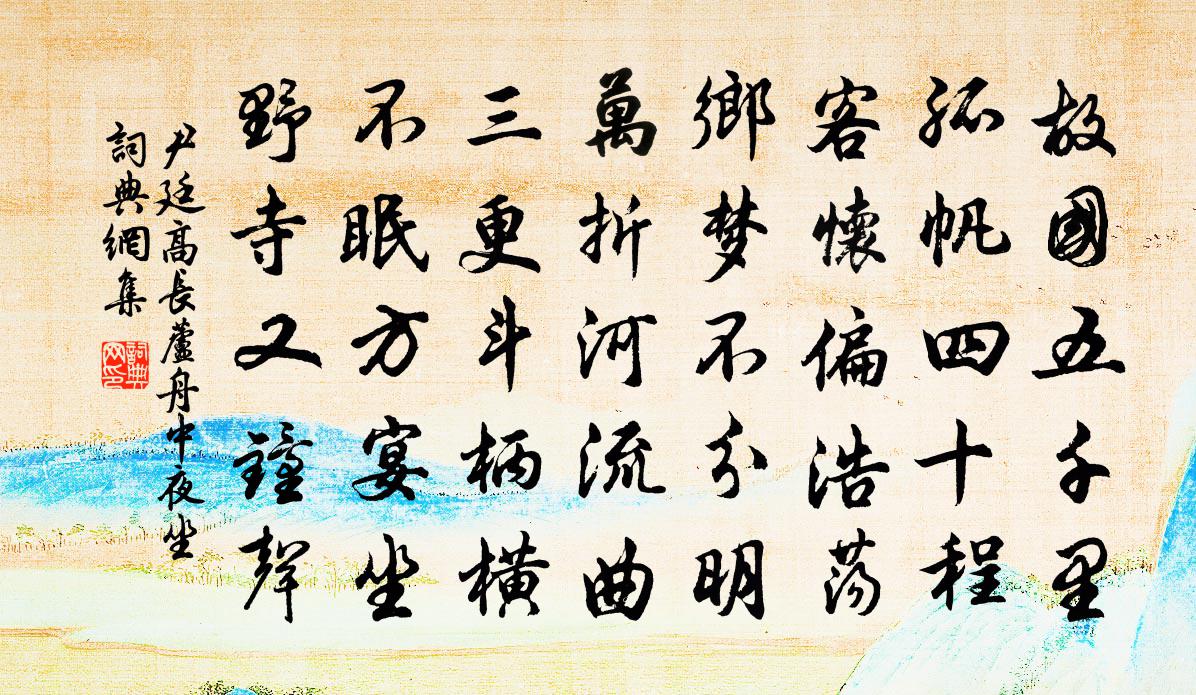 故國五千里
孤帆四十程
客懷偏浩蕩
鄉梦不分明
萬折河流曲
三更斗柄橫
不眠方宴坐
野寺又鐘聲
尹廷高長蘆舟中夜坐
詞典網集
詞典网印